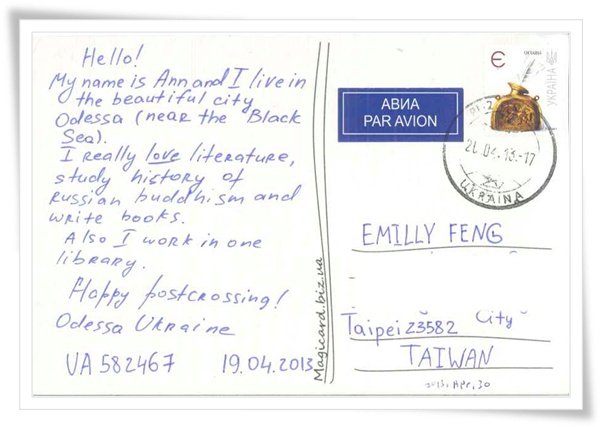 Hello!
My name is Ann and I live in
the beautiful city
Odessa (near the Black
Sea).
I really love literature,
study history of
russian buddhism and
write books.
Also I work in one
library.
Happy postcrossing!
Odessa Ukraine
UA 582467 19.04.2013
Magicard.biz.ua
АВИА
PAR AVION
Є
УКРАЇНА
04.13.-17
UKRAINA
EMILLY FENG
Taipei 23582 City
TAIWAN
2013. Apr. 30